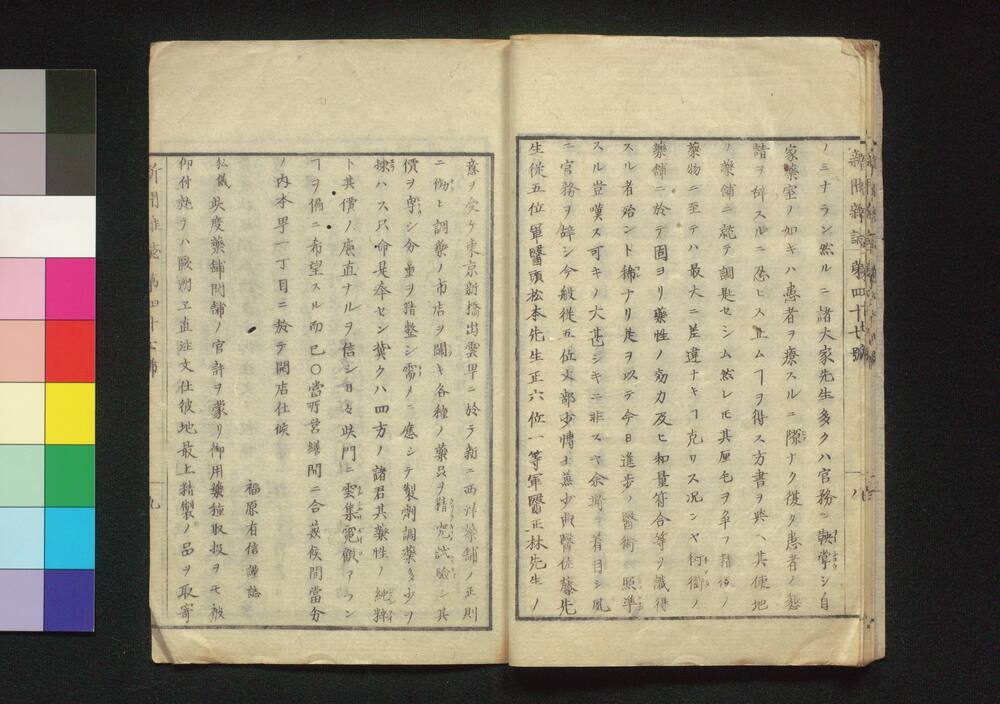 新聞雜誌 第四十七號
八
ノミナラン然ルニ諸大家先生多クハ官務ニ鞅掌シ自
家藥室ノ如キハ患者ヲ療スルニ隙ナク復タ患者ノ懇
請ヲ辞スルニ忍ヒス止ムヿヲ得ス方書ヲ與ヘ其便地
ノ藥舗ニ就テ調匙セシム然レ𪜈其厘毛ヲ争フ猾徒ノ
藥物ニ至テハ最大ニ差違ナキヿ克ワス况ンヤ柯衢ノ
藥舗ニ於テ固ヨリ藥性ノ効力及ヒ和量符合等ヲ識得
スル者殆ント稀ナリ是ヲ以テ今日進歩ノ醫術ニ照準
スル豈嘆ス可キノ大甚シキニ非スヤ余嘗テ着目シ風
ニ官務ヲ辞シ今般従五位大部少博士兼少典醫佐藤先
生従五位軍醫頭松本先生正六位一等軍醫正林先生ノ
意ヲ受ケ東京新橋出雲町ニ於テ新ニ西洋藥舗ノ正則
ニ倣ヒ調藥ノ市店ヲ開キ各種ノ藥品ヲ精究試驗シ其
價ヲ卑シ分量ヲ猾整シ需メニ應シテ製劑調藥多少ヲ
擇ハス只命是奉セン冀クハ四方ノ諸君其藥性ノ純粹
ト其價ノ廉直ナルヲ信シ日々此門ニ雲集寵顧アラン
ヿヲ偏ニ希望スル而已〇當町営繕間ニ合兼候間當分
ノ内本町一丁目ニ於テ開店仕候
福原有信謹誌
私儀此度藥舗開舗ノ官許ヲ蒙リ御用藥種取扱ヲモ被
仰付就テハ歐洲エ直注文仕彼地最上精製ノ品ヲ取寄
新聞雜誌 第四十七號
九